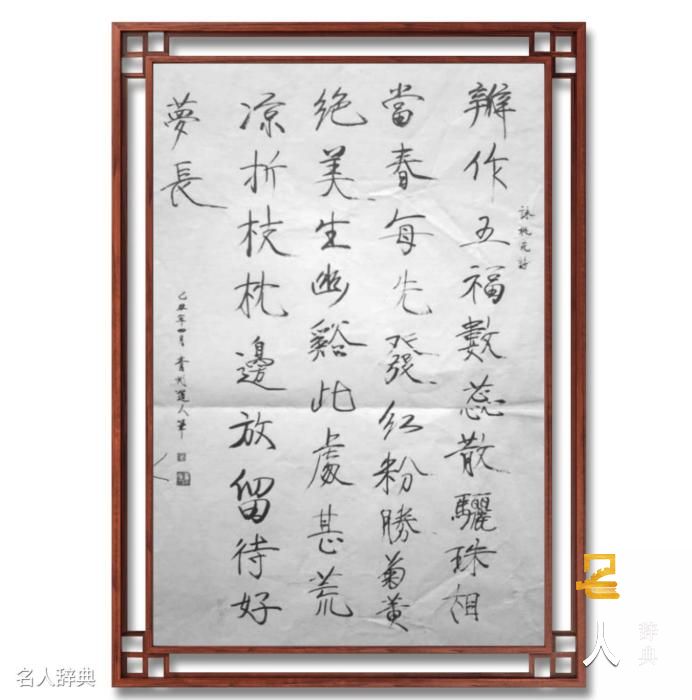 詠桃花詩
辦作五福數蕊散驪珠相
當春每先發紅粉勝菊黃
絕美生幽谿此處甚荒
凉折枝枕邊放留待好
夢長
己丑年四月青州道人筆
名人辞典
名人辞典